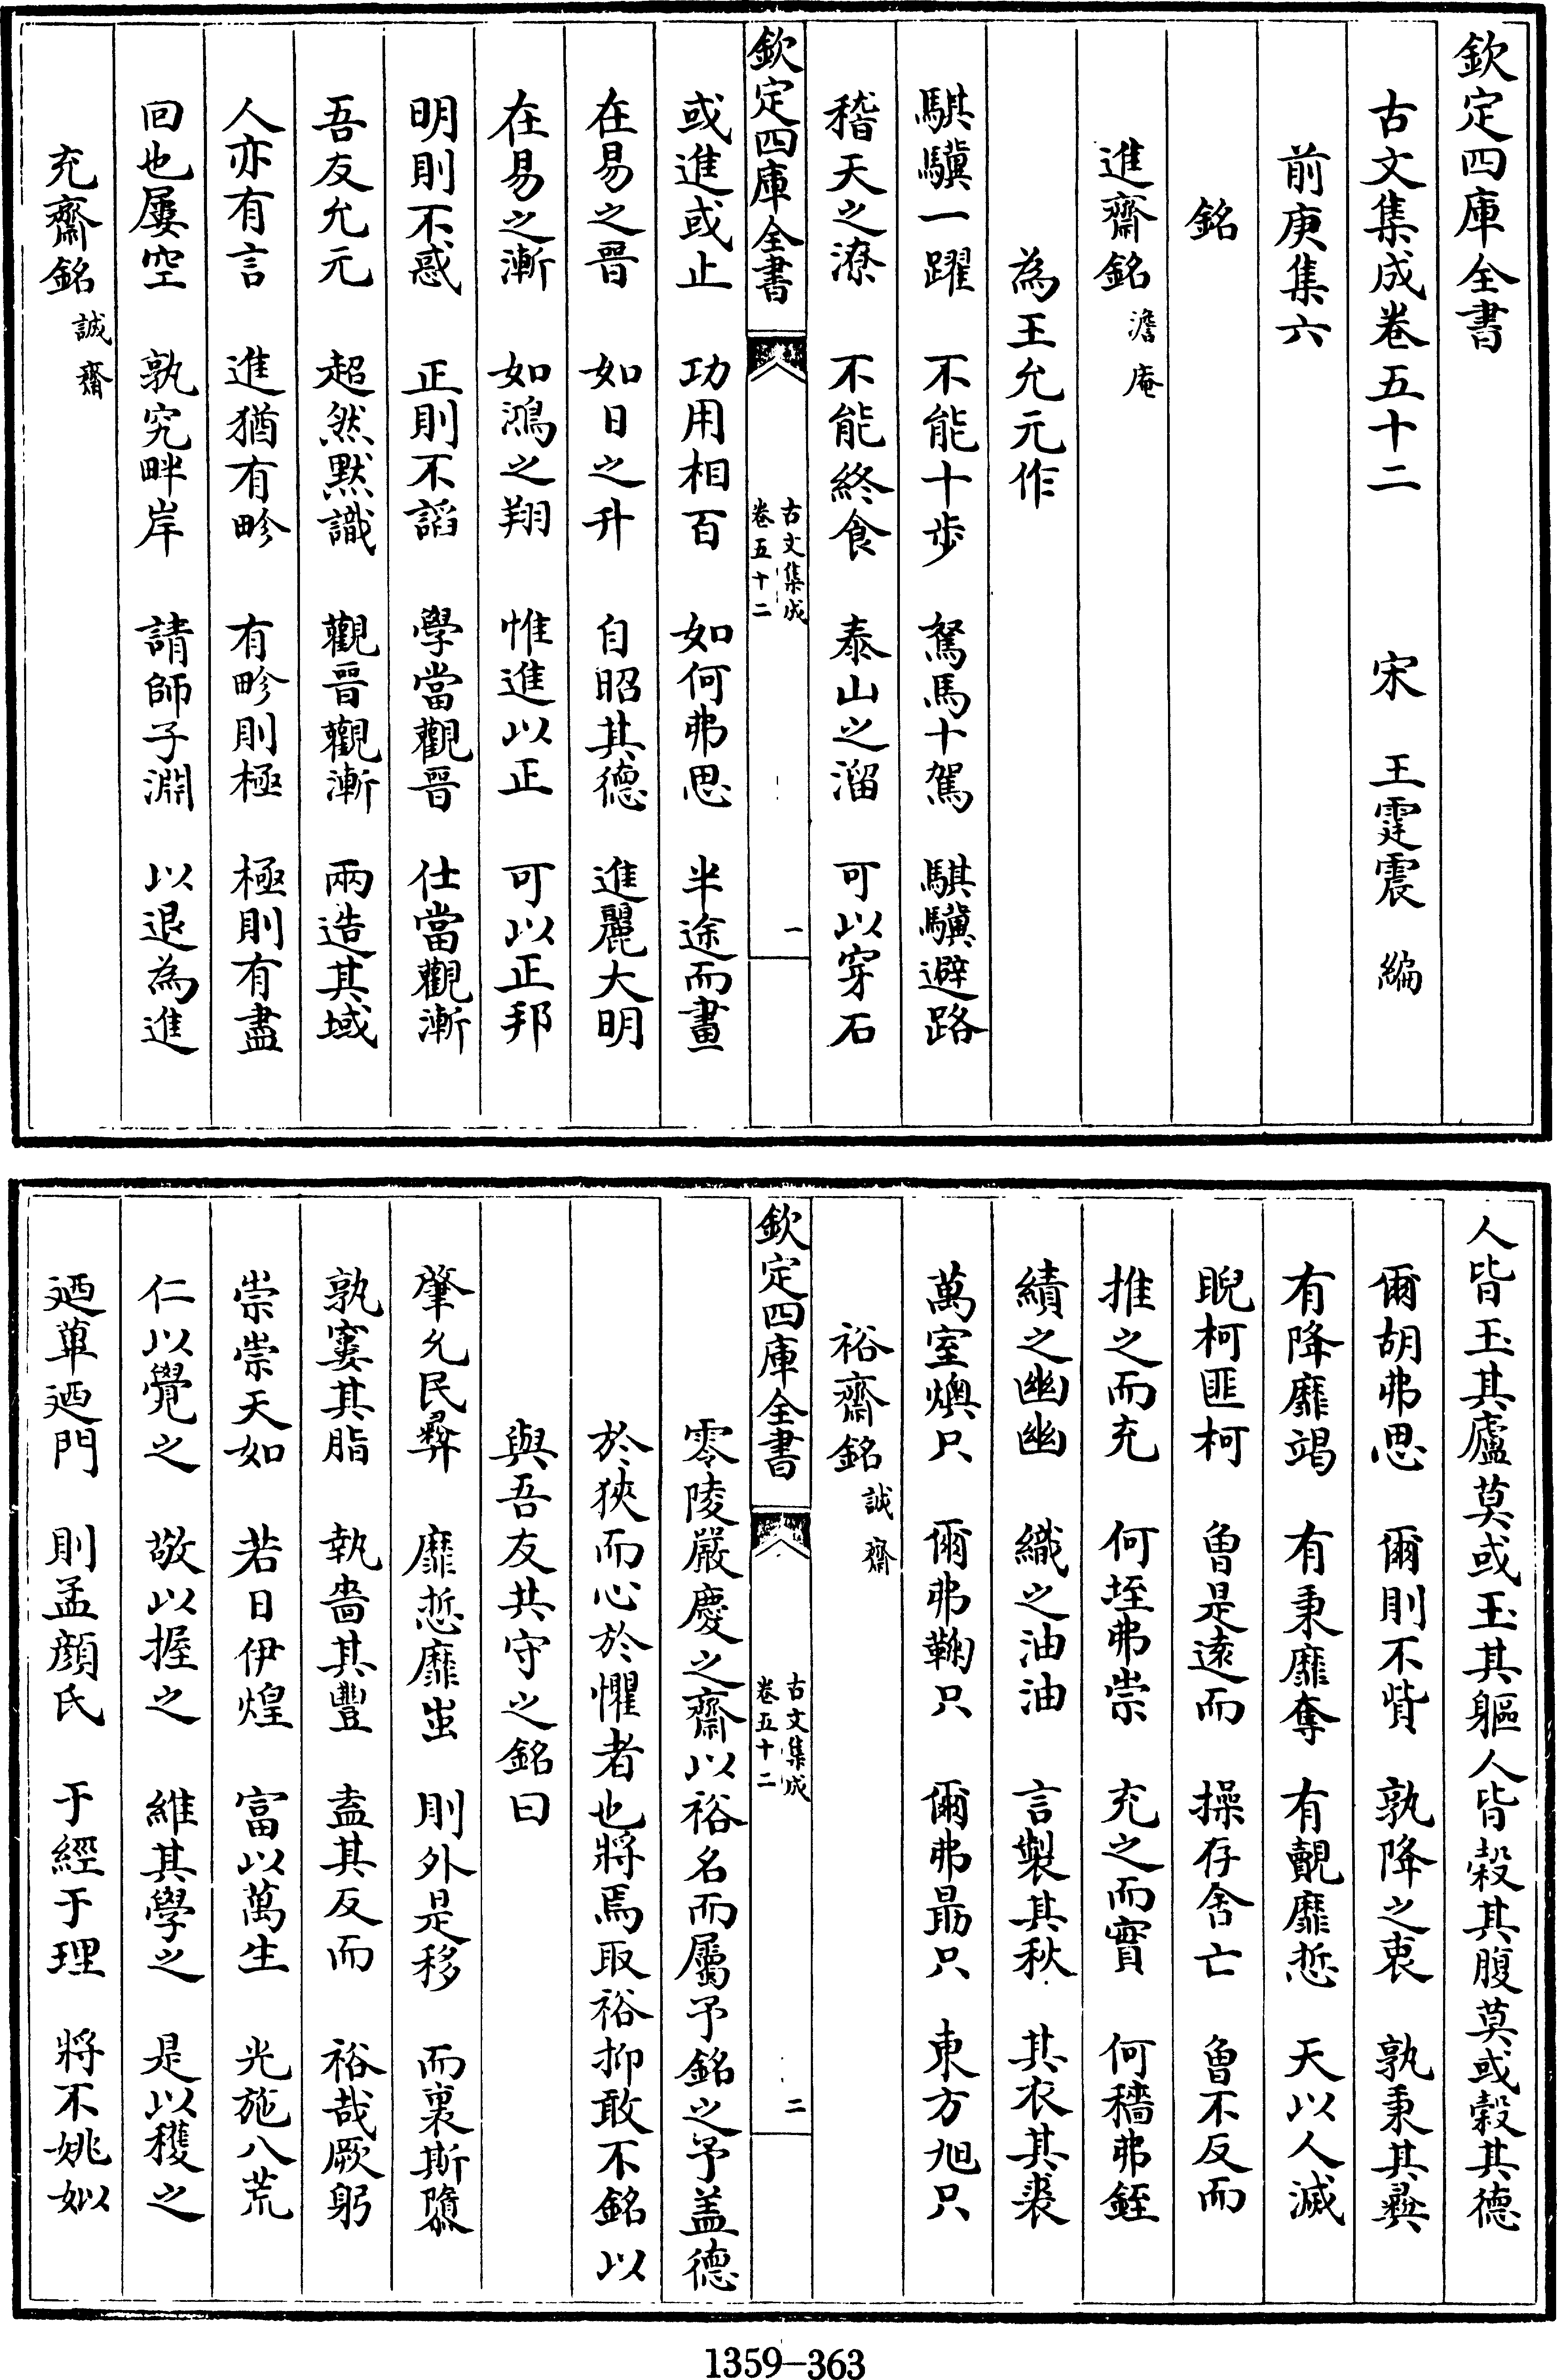 欽定四庫全書
古文集成卷五十二　宋　王霆震　編
前庚集六
銘
進齋銘 澹庵
為王允元作
騏驥一躍　不能十歩　駑馬十駕　騏驥避路
稽天之潦　不能終食　泰山之溜　可以穿石
欽定四庫全書　古文集成卷五十二　一
或進或止　功用相百　如何弗思　半途而畫
在易之晋　如日之升　自昭其德　進麗大明
在易之漸　如鴻之翔　惟進以正　可以正邦
明則不惑　正則不謟　學當觀晋　仕當觀漸
吾友允元　超然默識　觀晋觀漸　兩造其域
人亦有言　進猶有畛　有畛則極　極則有盡
回也屢空　孰究畔岸　請師子淵　以退為進
充齋銘 誠齋
人皆玉其廬莫或玉其軀人皆穀其腹莫或穀其德
爾胡弗思　爾則不貲　孰降之衷　孰秉其彞
有降靡竭　有秉靡奪　有覿靡悊　天以人滅
睨柯匪柯　曽是逺而　操存舍亡　曽不反而
推之而充　何垤弗崇　充之而實　何穡弗銍
績之幽幽　織之油油　言製其秋　其衣其裘
萬室燠只　爾弗鞠只　爾弗勗只　東方旭只
裕齋銘 誠齋
欽定四庫全書　古文集成卷五十二　二
零陵嚴慶之齋以裕名而屬予銘之予盖德
於狹而心於懼者也將焉取裕抑敢不銘以
與吾友共守之銘曰
肇允民彛　靡悊靡蚩　則外是移　而裏斯隳
孰窶其脂　執嗇其豐　盍其反而　裕哉厥躬
崇崇天如　若日伊煌　富以萬生　光施八荒
仁以覺之　敬以握之　維其學之　是以穫之
廼葷廼門　則孟顔氏　于經于理　將不姚姒
1359-363